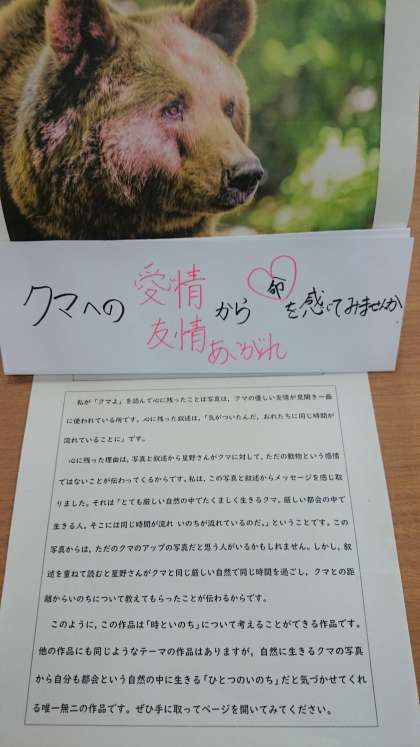 クマへの
愛情
友情
あこがれ
から
命
を感じてみませんか
私が「クマよ」を読んで心に残ったことは写真は、クマの優しい表情が見開き一面
に使われている所です。心に残った叙述は、「気がついたんだ、おれたちに同じ時間が
流れていることに」です。
心に残った理由は、写真と叙述から星野さんがクマに対して、ただの動物という感情
ではないことが伝わってくるからです。私は、この写真と叙述からメッセージを感じ取
りました。それは「とても厳しい自然の中でたくましく生きるクマ。厳しい都会の中で
生きる人。そこには同じ時間が流れ いのちが流れているのだ。」ということです。この
写真からは、ただのクマのアップの写真だと思う人がいるかもしれません。しかし、叙
述を重ねて読むと星野さんがクマと同じ厳しい自然で同じ時間を過ごし、クマとの距
離からいのちについて教えてもらったことが伝わるからです。
このように、この作品は「時といのち」について考えることができる作品です。
他の作品にも同じようなテーマの作品はありますが、自然に生きるクマの写真
から自分も都会という自然の中に生きる「ひとつのいのち」だと気づかせてくれ
る唯一無二の作品です。ぜひ手に取ってページを開いてみてください。